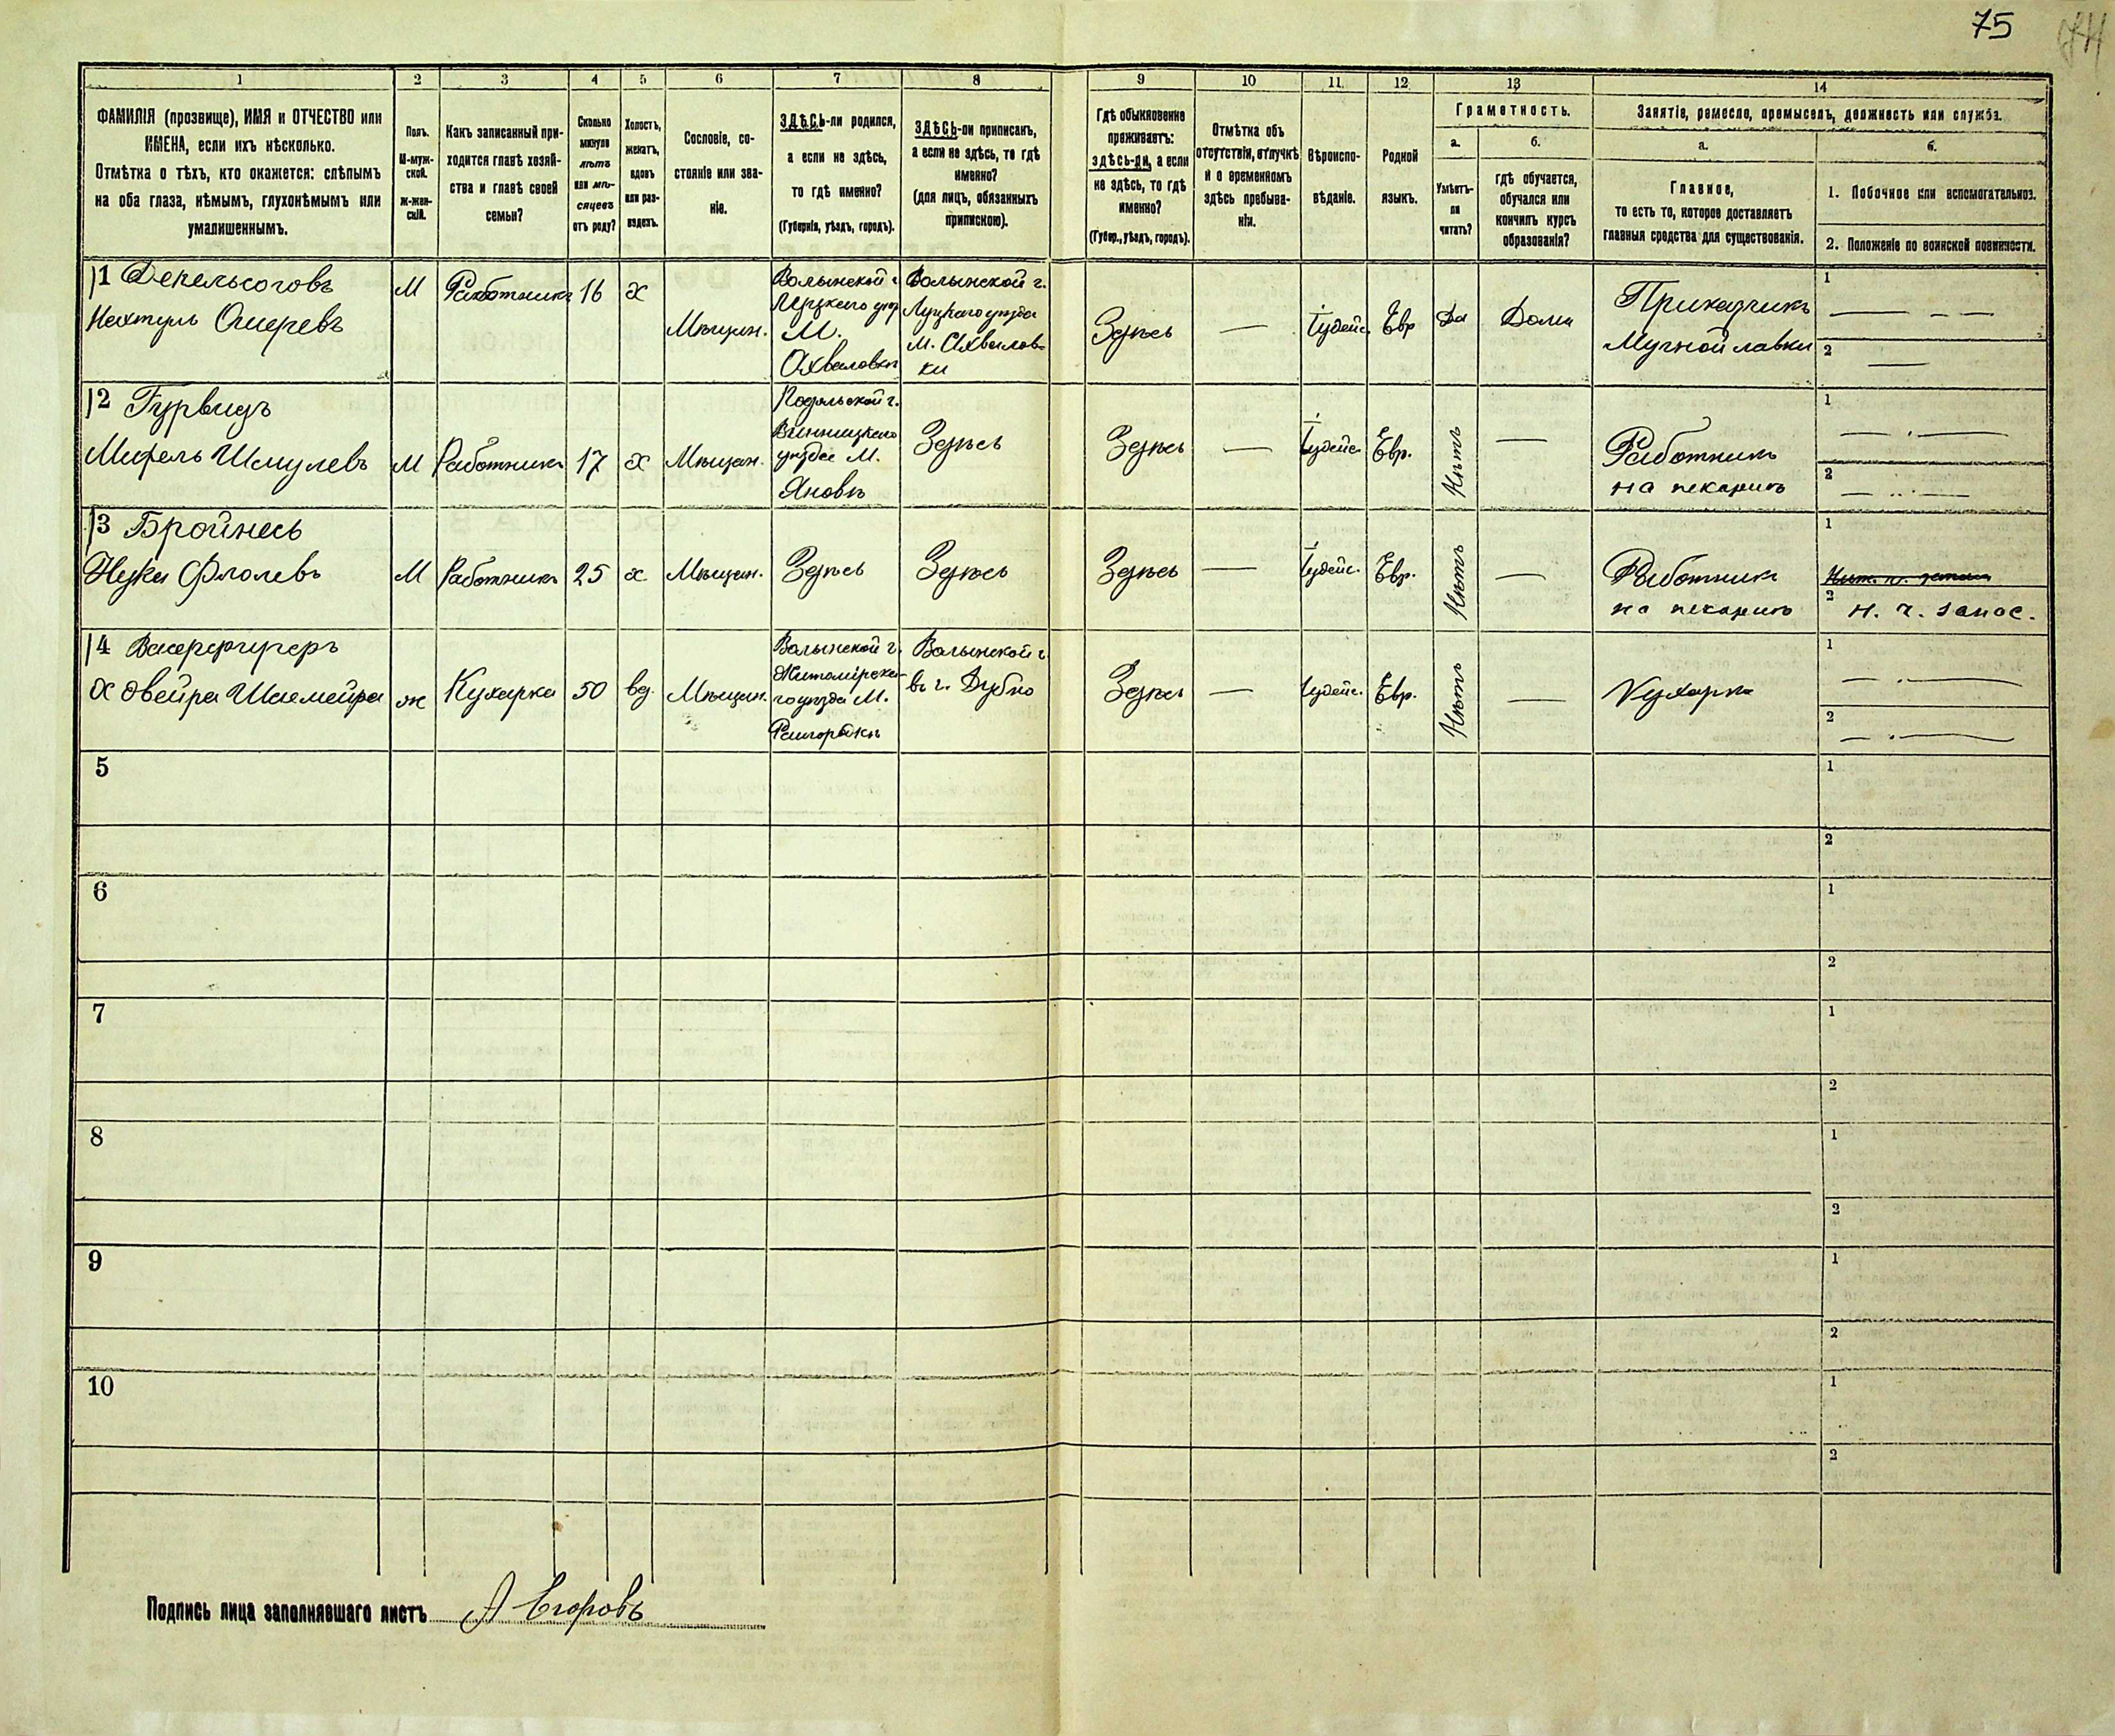 75
1 2 3 4 5 6 7 8 9 10 11 12 13 14
ФАМИЛІЯ (прозвище), ИМЯ и ОТЧЕСТВО или
ИМЕНА, если ихъ нѣсколько.
Отмѣтка о тѣхъ, кто окажется: слѣпымъ
на оба глаза, нѣмымъ, глухонѣмымъ или
умалишеннымъ.
Полъ.
М-муж-
ской.
ж-жен-
скій.
Какъ записанный при-
ходится главѣ хозяй-
ства и главѣ своей
семьи?
Сколько
минуло
лѣтъ
или мѣ-
сяцевъ
отъ роду?
Холостъ,
женатъ,
вдовъ
или раз-
веденъ.
Сословіе, со-
стояніе или зва-
ніе.
ЗДѢСЬ-ли родился,
а если не здѣсь,
то гдѣ именно?
(Губернія, уѣздъ, городъ).
ЗДѢСЬ-ли приписанъ,
а если не здѣсь, то гдѣ
именно?
(для лицъ, обязанныхъ
припискою).
Гдѣ обыкновенно
проживаетъ:
здѣсь-ли, а если
не здѣсь, то гдѣ
именно?
(Губер., уѣздъ, городъ).
Отмѣтка объ
отсутствіи, отлучкѣ
и о временномъ
здѣсь пребыва-
ніи.
Вѣроиспо-
вѣданіе.
Родной
языкъ.
Грамотность.
а.
Умѣетъ-
ли
читать?
б.
гдѣ обучается,
обучался или
кончилъ курсъ
образованія?
Занятіе, ремесло, промыселъ, должность или служба.
а.
Главное,
то есть то, которое доставляетъ
главныя средства для существованія.
б.
1. Побочное или вспомогательное.
2. Положеніе по воинской повинности.
1
Нахтуль Ошеревъ
М
Работникъ
16
х
Мѣщан.
Волынской г.
Луцкаго уѣзд
М.
Волынской г.
Луцкаго уѣзда
Здѣсь
—
Іудейс.
Евр
Да
Дома
Прикащикъ
Мучной лавки
1 — — —
2 —
2 Гурвицъ
Шмулевъ
М
Работникъ
17
х
Мѣщан.
Подольской г.
Винницкаго
уѣзда М.
Яновѣ
Здѣсь
Здѣсь
—
Іудейс.
Евр.
Нѣтъ
—
Работникъ
на пекарнѣ
1 — . —
2 — .. —
3 Бройнесь
М
Работникъ
25
х
Мѣщан.
Здѣсь
Здѣсь
Здѣсь
—
Іудейс.
Евр.
Нѣтъ
—
Работникъ
на пекарнѣ
1
2 н. ч. запас.
4
ж
Кухарка
50
вд.
Мѣщан.
Волынской г.
Житомірска-
го уѣзда М.
Волынской г
въ г. Дубно
Здѣсь
—
Іудейс.
Евр.
Нѣтъ
—
Кухарка
1 — . —
2 — . —
5
1
2
6
1
2
7
1
2
8
1
2
9
1
2
10
1
2
Подпись лица заполнявшаго листъ А Егоровъ